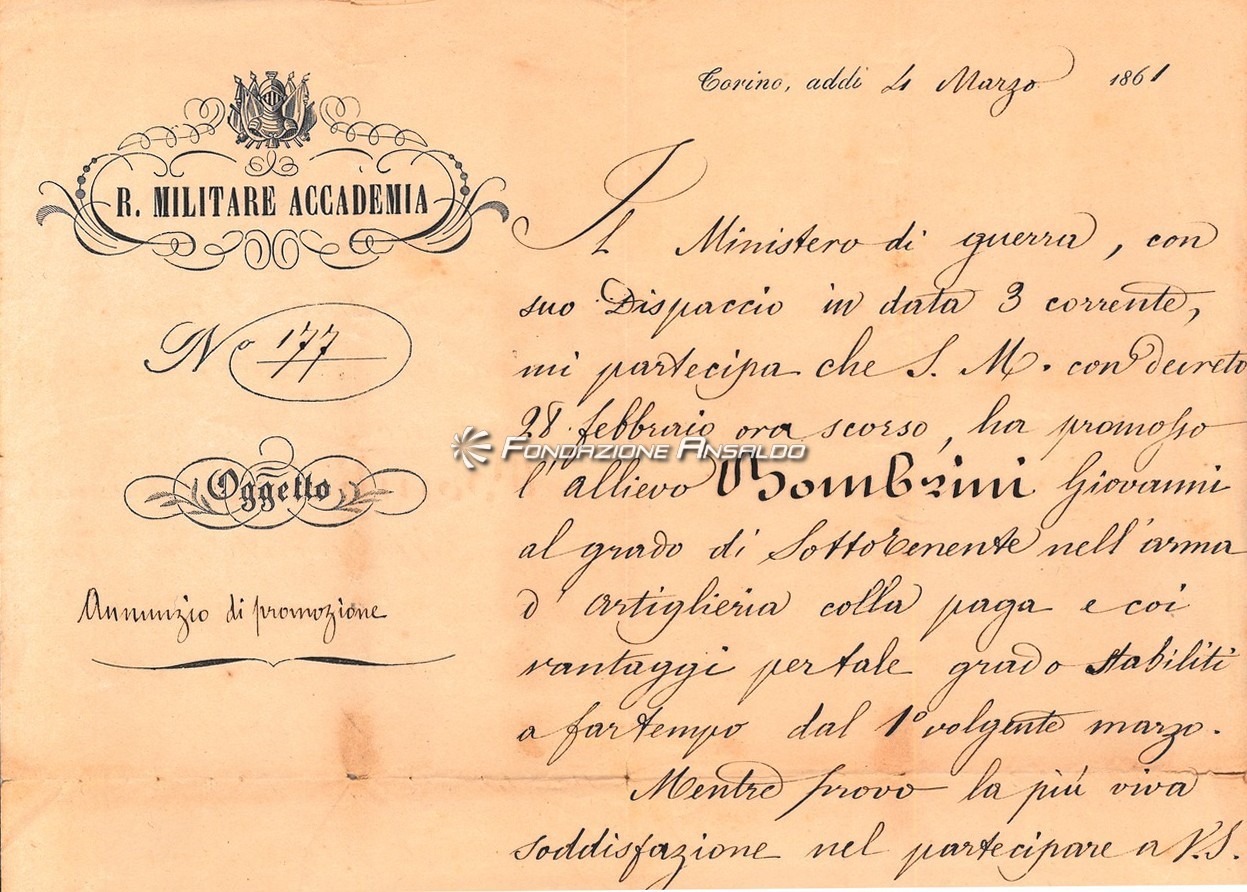 R. MILITARE ACCADEMIA
No 177
Oggetto
Annunzio di promozione
Torino, addi 4 Marzo 1861
Il Ministero di guerra, con
suo Dispaccio in data 3 corrente,
mi partecipa che S. M. con decreto
28 febbraio ora scorso, ha promosso
l'allievo Bombrini Giovanni
al grado di Sottotenente nell'arma
d'artiglieria colla paga e coi
vantaggi per tale grado stabiliti
a far tempo dal 1º volgente marzo.
Mentre provo la più viva
soddisfazione nel partecipare a V.S.
FONDAZIONE ANSALDO